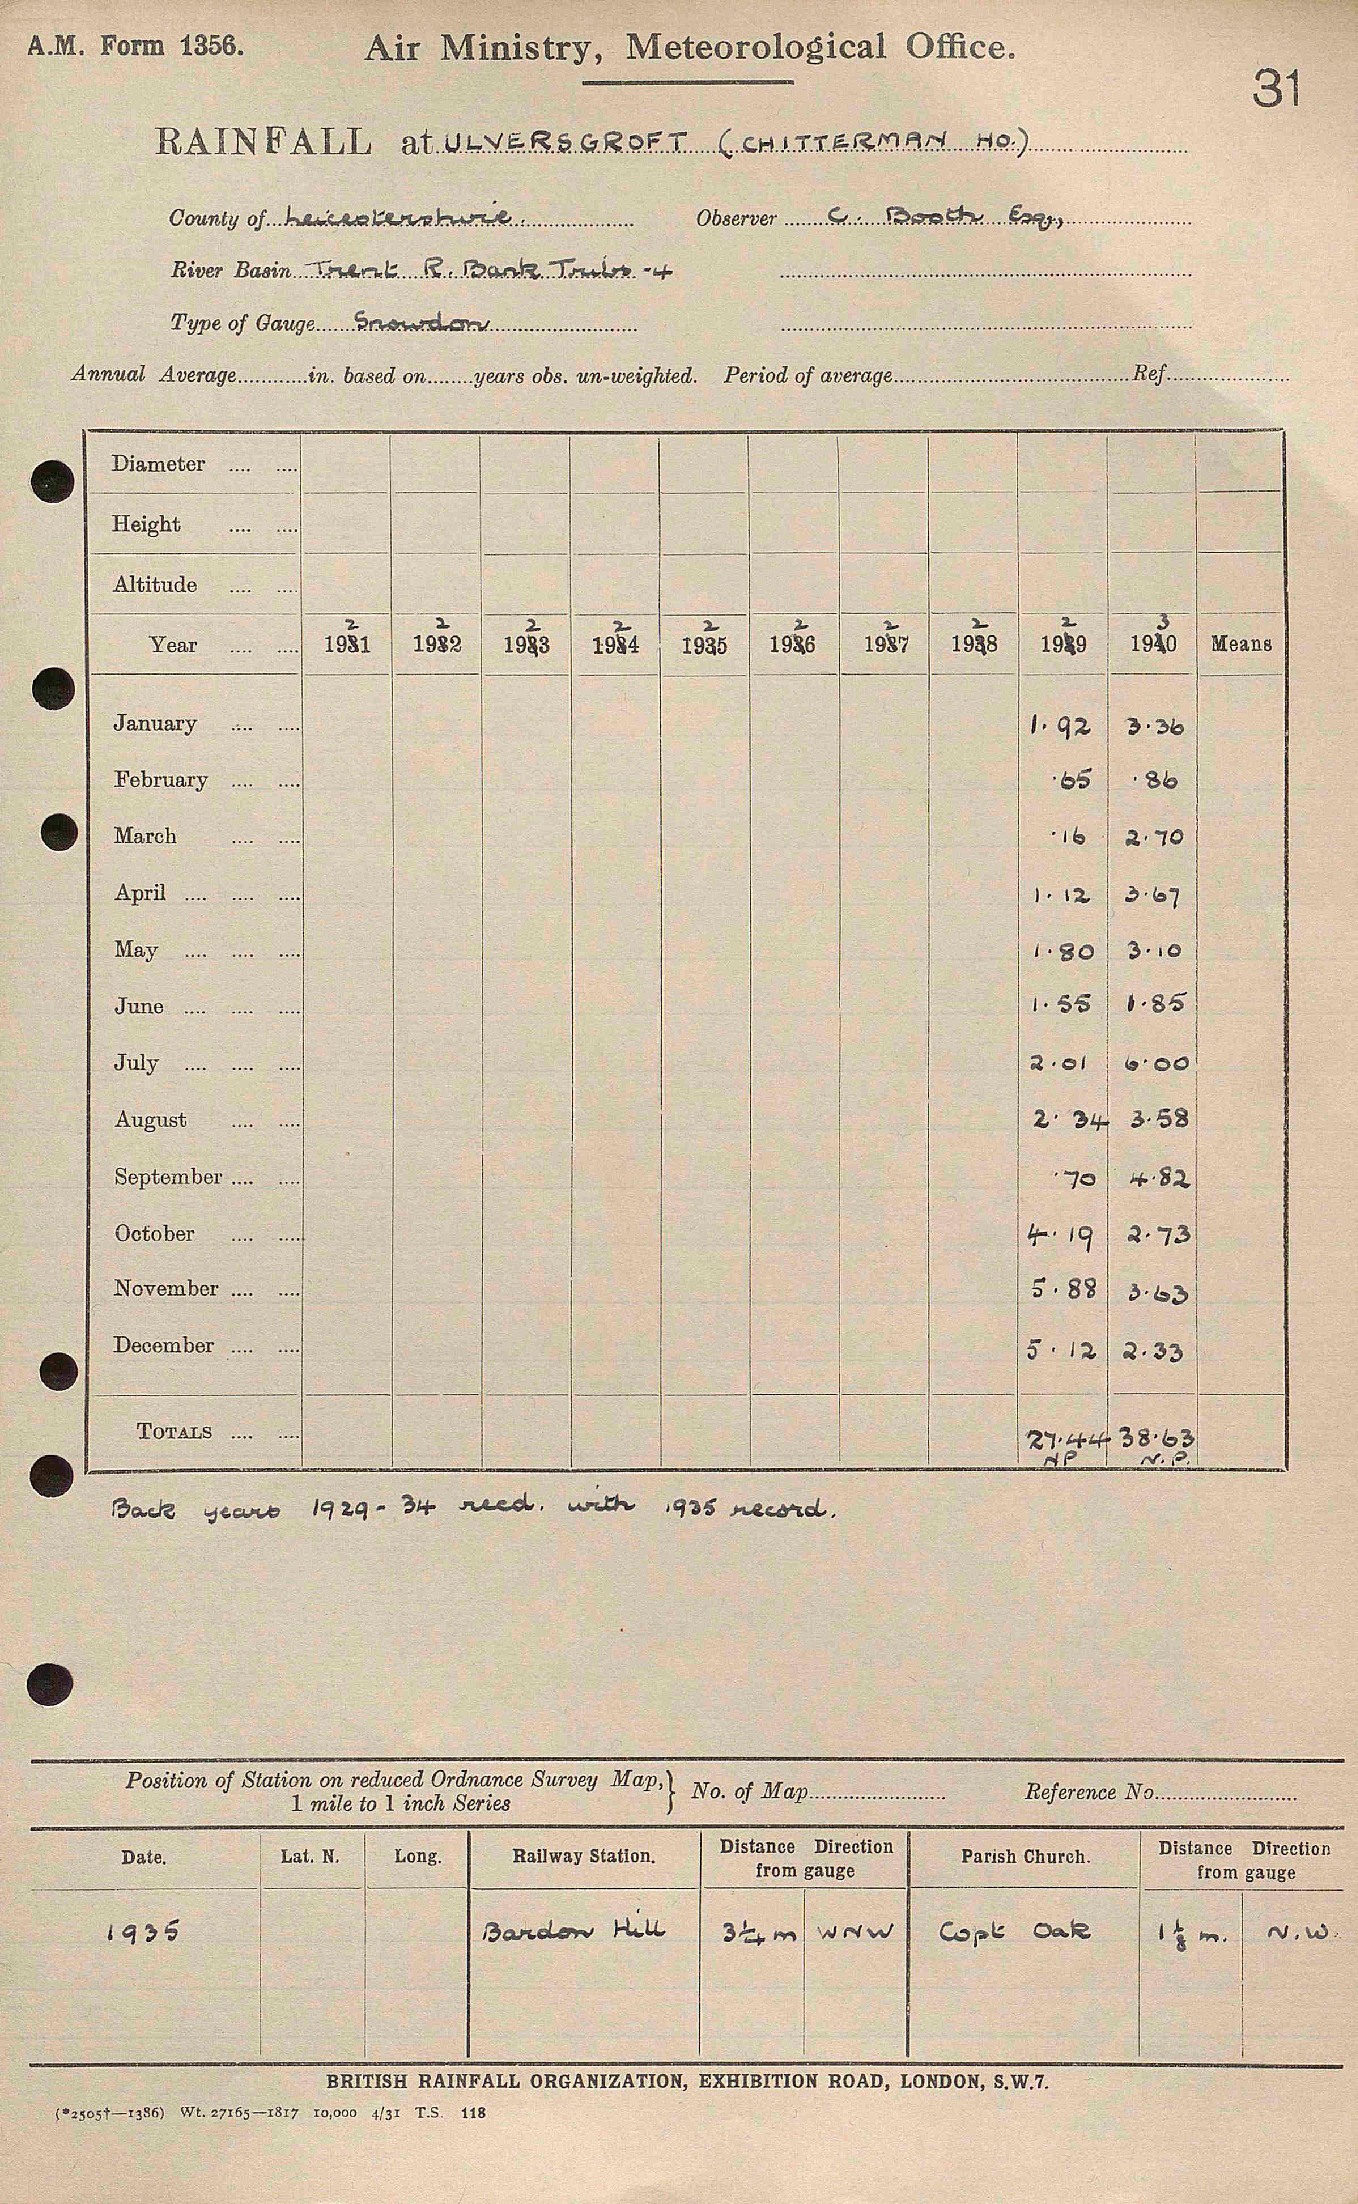 A.M. Form 1356.
Air Ministry, Meteorological Office.
31
RAINFALL at ULVERSGROFT (CHITTERMAN HO.)
County of Leicestershire. Observer C. Booth Esq.,
River Basin Trent R. Bank Tribs -4
Type of Gauge Snowdon
Annual Average............in. based on........years obs. un-weighted. Period of average........................................Ref.....................
Diameter .... ....
Height .... ....
Altitude .... ....
2 2 2 2 2 2 2 2 2 3
Year .... .... 1931 1932 1933 1934 1935 1936 1937 1938 1939 1940 Means
January .... .... 1.92 3.36
February .... .... .65 .86
March .... .... .16 2.70
April .... .... .... 1.12 3.67
May .... .... .... 1.80 3.10
June .... .... .... 1.55 1.85
July .... .... .... 2.01 6.00
August .... .... 2.34 3.58
September .... .... .70 4.82
October .... .... 4.19 2.73
November .... .... 5.88 3.63
December .... .... 5.12 2.33
TOTALS .... .... 27.44 38.63
NP N.P.
Back years 1929-34 recd. with 1935 record.
Position of Station on reduced Ordnance Survey Map, } No. of Map........................ Reference No.........................
1 mile to 1 inch Series
Date. Lat. N. Long. Railway Station. Distance Direction from gauge Parish Church. Distance Direction from gauge
1935 Bardon Hill 3¼ m WNW Copt Oak 1⅛ m. N.W.
BRITISH RAINFALL ORGANIZATION, EXHIBITION ROAD, LONDON, S.W.7.
(*2505†—1386) Wt. 27165—1817 10,000 4/31 T.S. 118